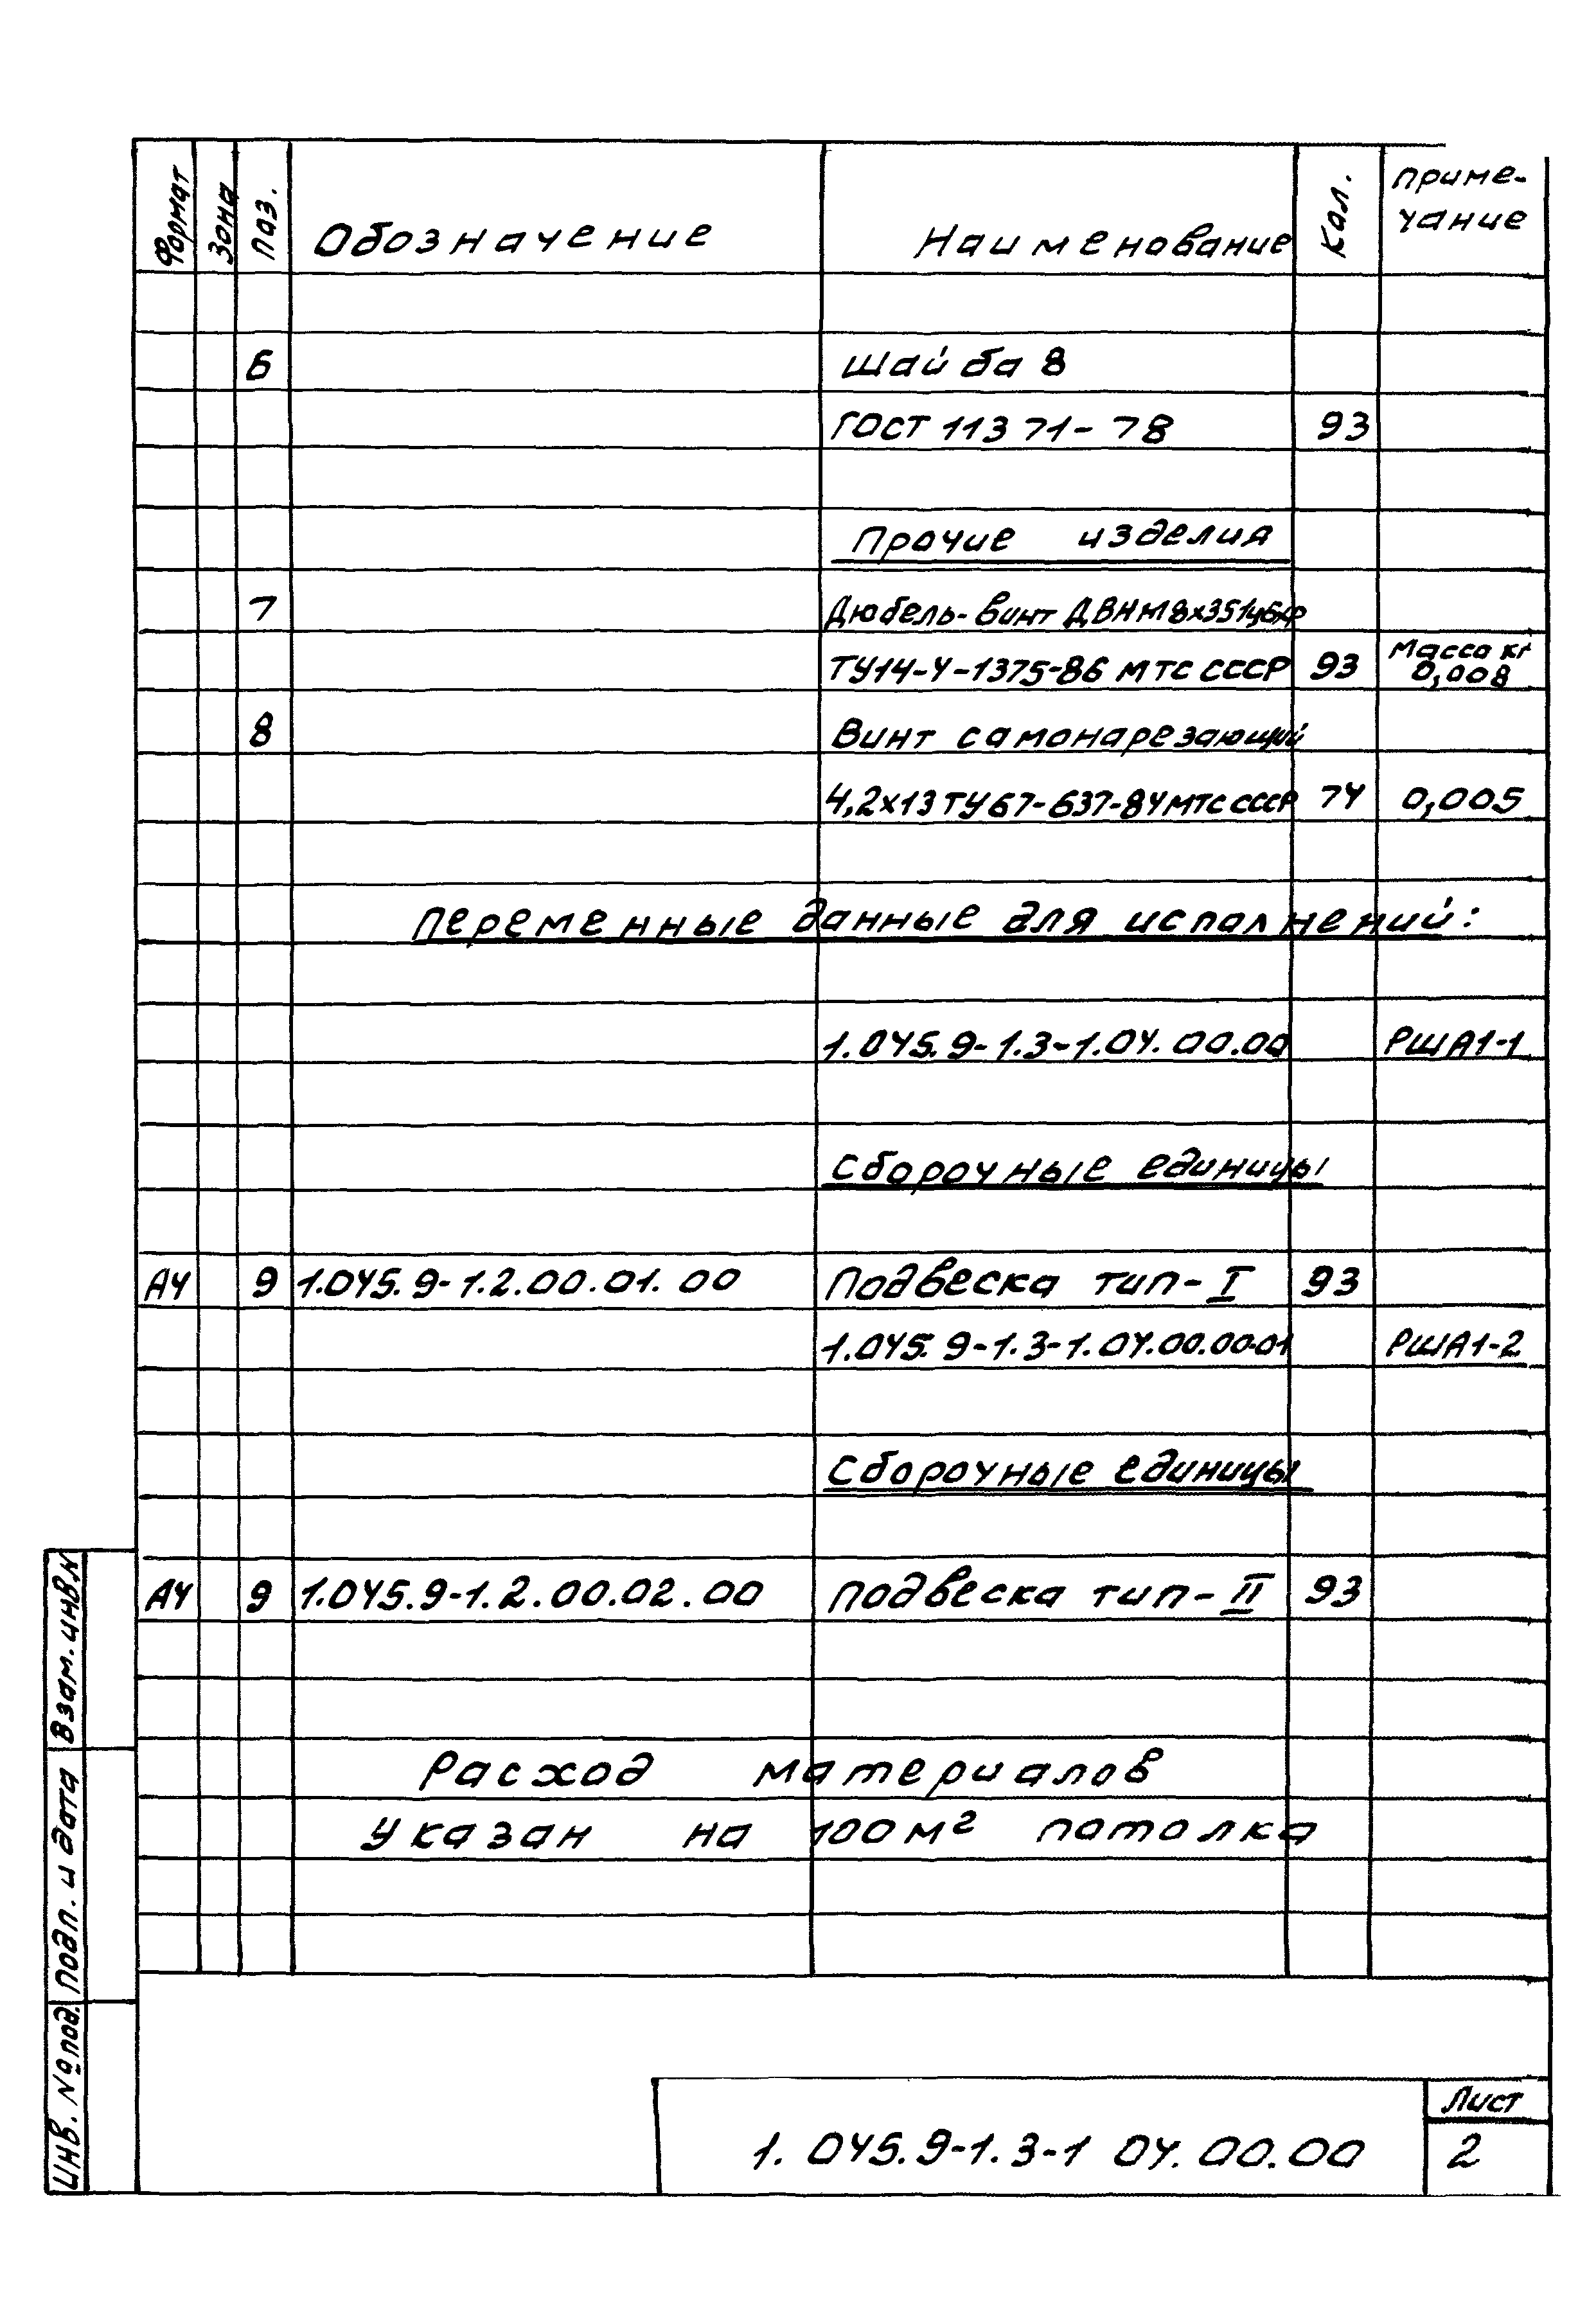 Формат Зона Поз. Обозначение Наименование Кол. Приме-
чание
6 Шайба 8
ГОСТ 11371-78 93
Прочие изделия
7 Дюбель-винт ДВН М8х35
ТУ14-4-1375-86 МТС СССР 93 Масса кг
0,008
8 Винт самонарезающий
4,2х13 ТУ67-637-84 МТС СССР 74 0,005
Переменные данные для исполнений:
1.045.9-1.3-1.04.00.00 РША1-1
Сборочные единицы
А4 9 1.045.9-1.2.00.01.00 Подвеска тип-I 93
1.045.9-1.3-1.04.00.00-01 РША1-2
Сборочные единицы
А4 9 1.045.9-1.2.00.02.00 Подвеска тип-II 93
Расход материалов
указан на 100м² потолка
Взам. инв.N
Подп. и дата
Инв. № под.
1.045.9-1.3-1 04.00.00
Лист
2